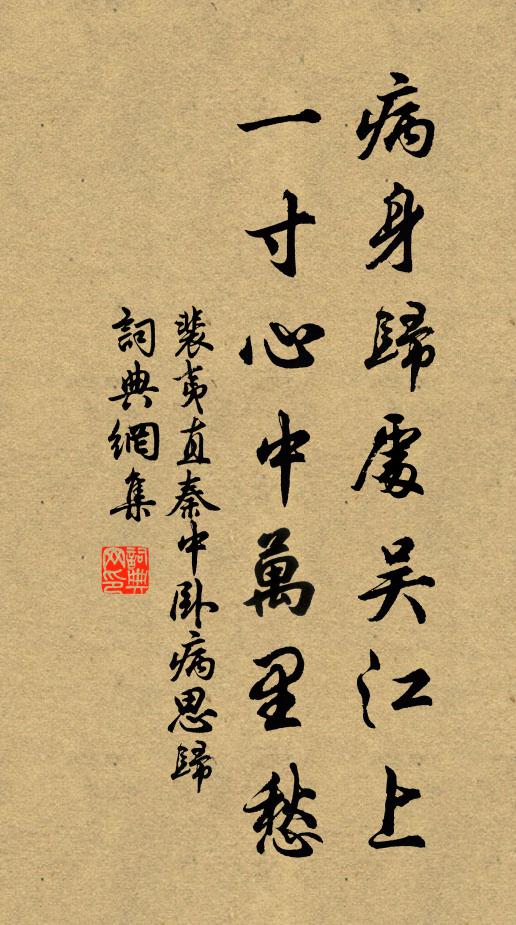 病身歸處吳江上
一寸心中萬里愁
裴夷直秦中臥病思歸
詞典網集
詞典網印